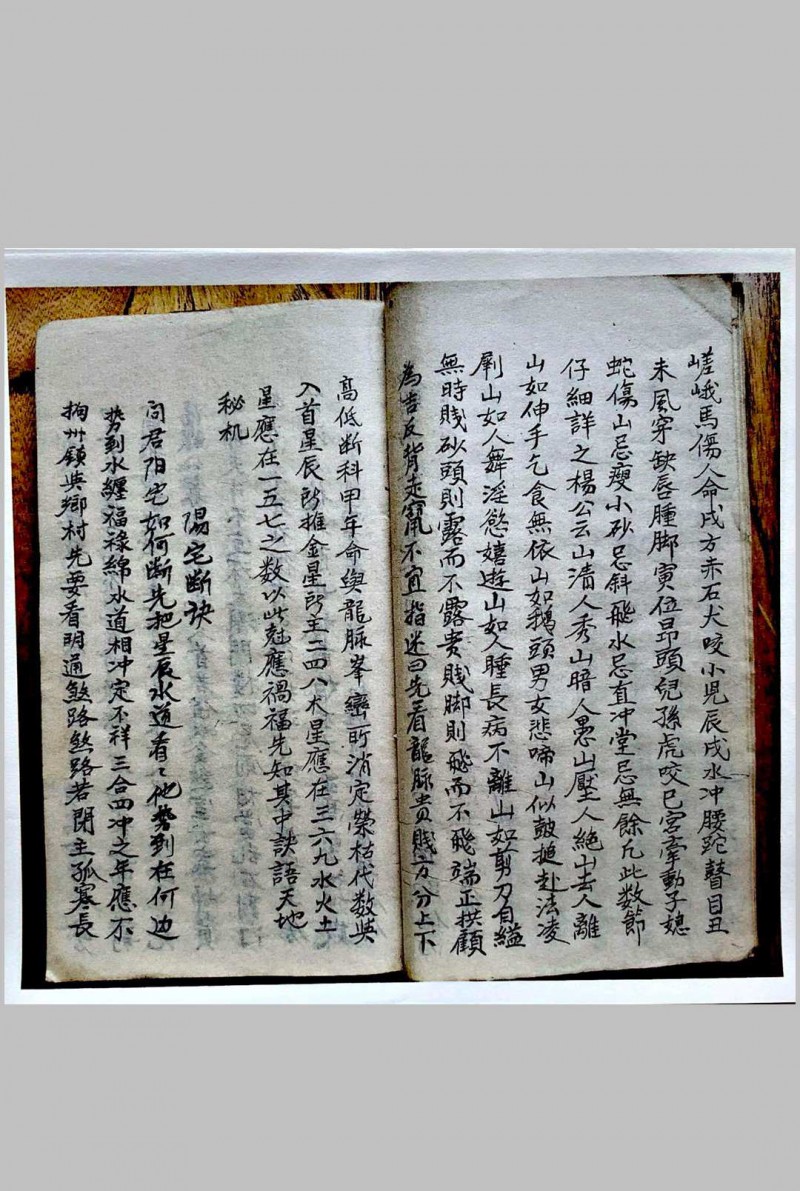 嵯峨馬傷人命戌方赤石犬咬小児辰戌水冲腰跎瞽目丑
未風穿缺唇腫脚寅位昂頭兒孫虎咬巳宮牽動子媳
蛇傷山忌瘦小砂忌斜飛水忌直冲堂忌無餘凢此数節
仔細詳之楊公云山清人秀山暗人愚山壓人絶山去人離
山如伸手乞食無依山如鵝頭男女悲啼山似鼓搥赴法凌
剮山如人舞淫慾嬉遊山如人睡長病不離山如剪刀自縊
無時賤砂頭則露而不露贵賤脚則飛而不飛端正拱顧
為吉反背走竄不宜指迷曰先看龍脉贵賤方分上下
高低断科甲年命與龍脉峯巒所消定榮枯代数與
入首星辰所推金星所主二四八木星應在三六九水火土
星應在一五七之数以此尅應禍福先知其中訣語天地
秘机
陽宅断訣
问君阳宅如何断先把星辰水道看〻他势到在何边
势到水纏福禄綿水道相冲定不祥三合四冲之年應不
拘州鎮與鄉村先要看明通煞路煞路若閉主孤寒長